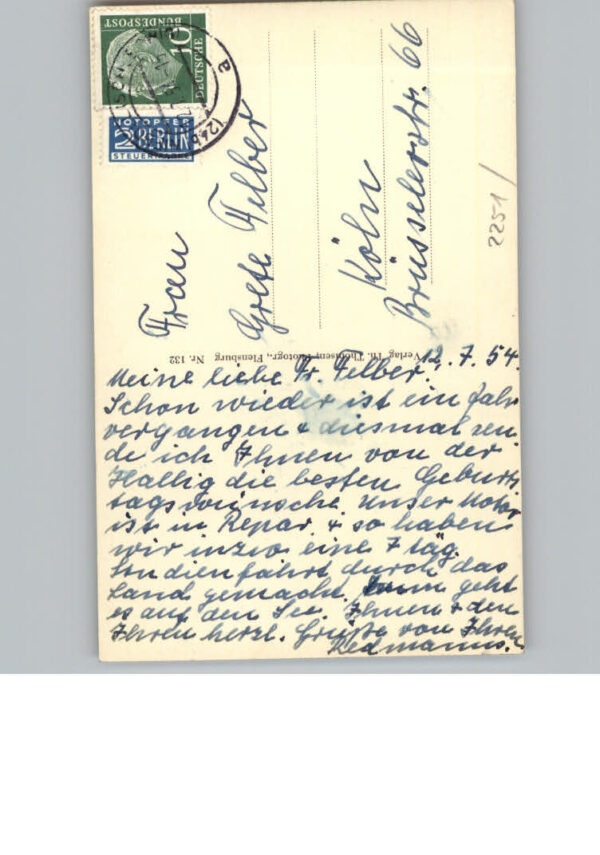 DEUTSCHE
BUNDESPOST
10
NOTOPFER
2 BERLIN
STEUERMARKE
(24b
a
Frau
Grete Felber
Köln
Brüsselerstr. 66
2251/
Verlag Th. Thomsen, Photogr., Flensburg Nr. 132
12.7.54.
Meine liebe Fr. Felber.
Schon wieder ist ein Jahr
vergangen & diesmal sen
de ich Ihnen von der
Hallig die besten Geburts
tagswünsche. Unser Motor
ist in Repar. & so haben
wir inzw. eine 7 täg.
Studienfahrt durch das
Land gemacht. Dann geht
es auf den See. Ihnen & den
Ihren herzl. Grüße von Ihren
Redmanns.